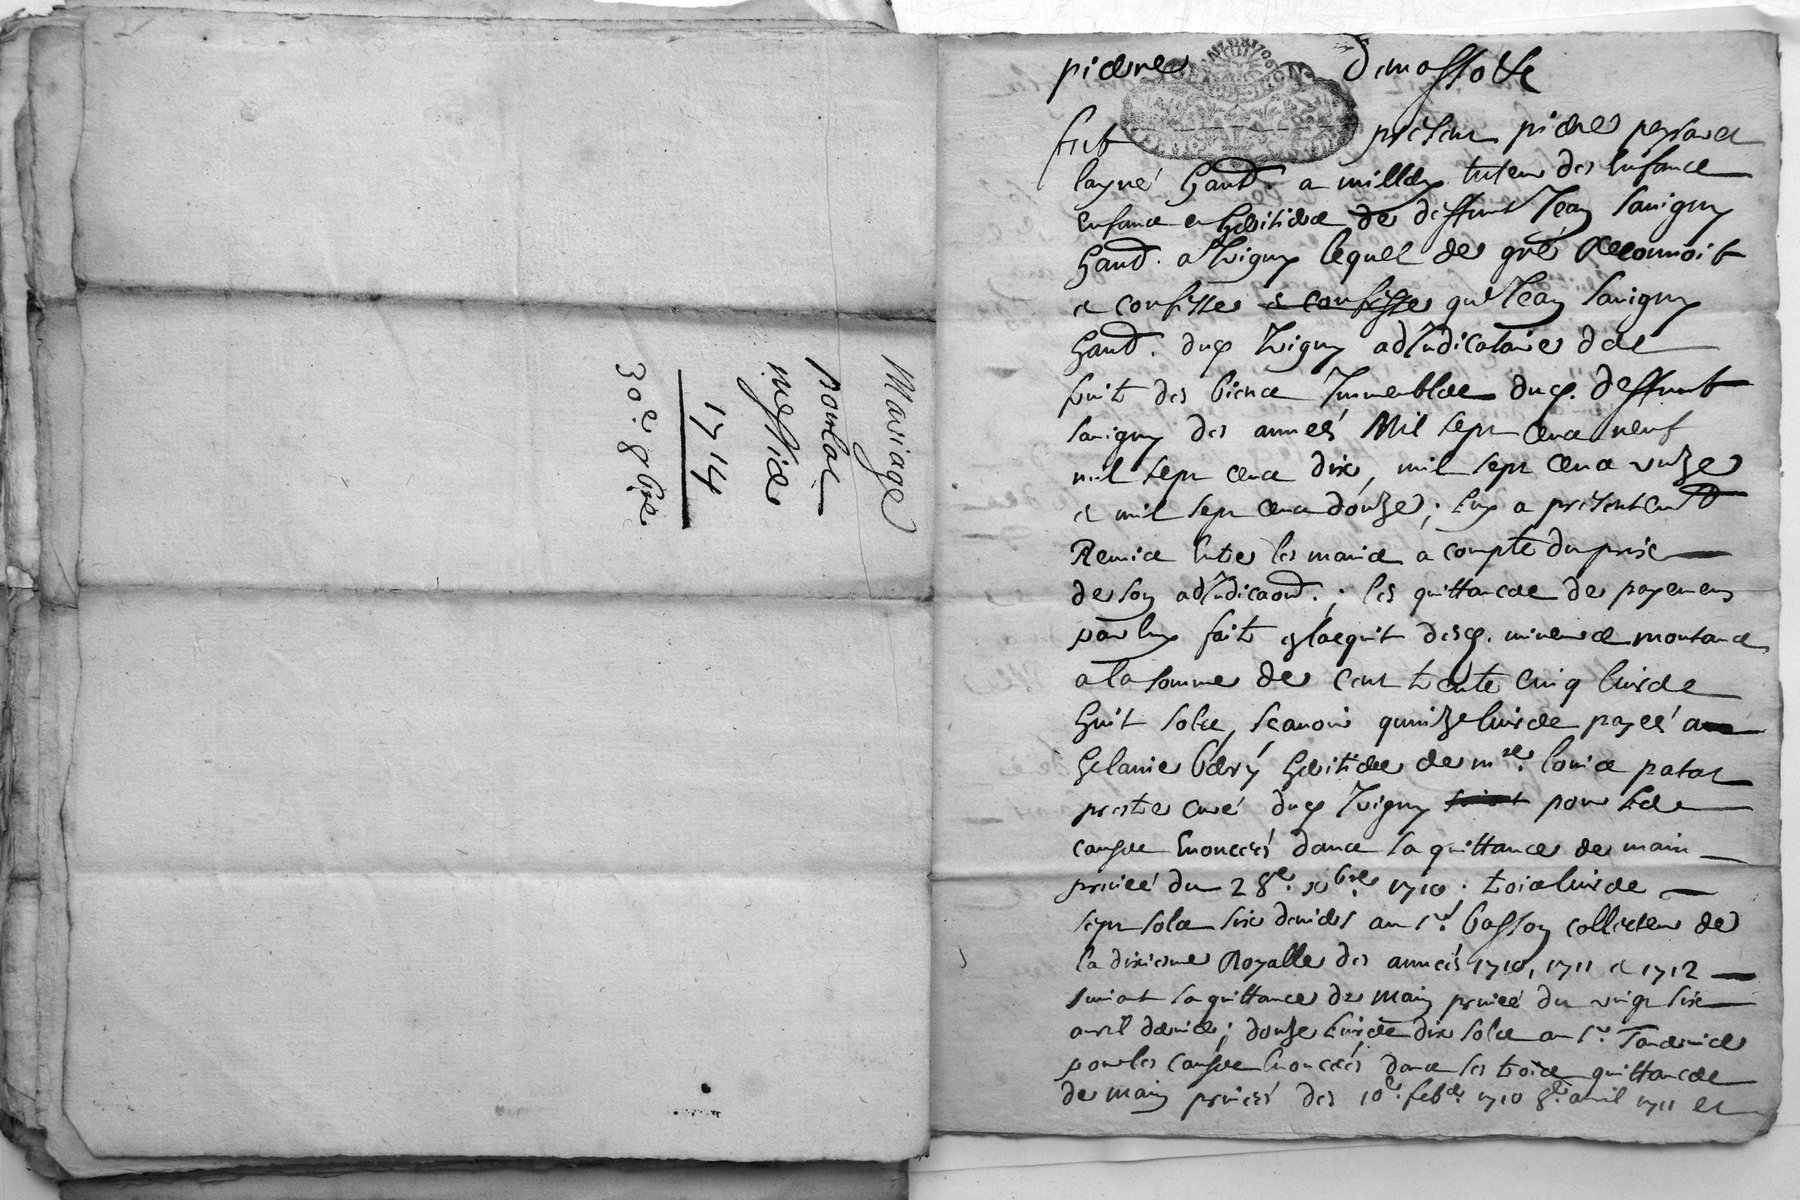 Mariage
pour
1714
30e 8bre
pierre Demassotte
fut présent pierre
layné hand. a tuteur des Enfance
Enfance de deffunt Jean Savigny
hand. a Zvigny lequel de gré Reconnoit
et confesse et confesse que Jean Savigny
hand. dud Zvigny adJudicataire de
fruit des biens Immeubles dud. deffunt
Savigny des années Mil sept cens neuf
mil sept cens dix, mil sept cens unze
et mil sept cens douze; luy a présent
Remis entre les mains a compte du prix
de son adJudicaon.; les quittances de payemens
par luy fait a lacquit desd. mineurs montans
a la somme de cent trente cinq livres
huit sols, scavoir quinze livres payés a
heritiere de mre. Louis
prestre curé dud Zvigny pour les
causes Enoncées dans la quittance de main
privée du 28e. xbre 1710. trois livres
sept sols six deniers au Sr. Basson collecteur de
la dixiesme Royalle des années 1710, 1711 et 1712
suivant la quittance de main privée du vingt six
avril dernier; douze livres dix sols au Sr.
pour les causes Enoncées dans les trois quittances
de main privées des 10e. febr. 1710 8e. avril 1711 et